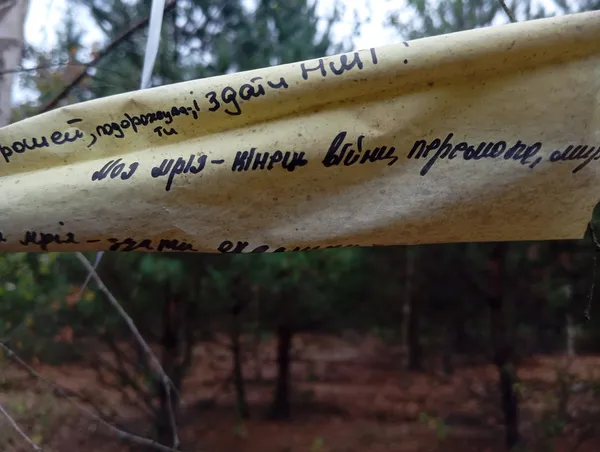 рошей, подорожувати, і здати НМТ!
Моя мрія - кінець війни, перемога, мир
мрія - здати